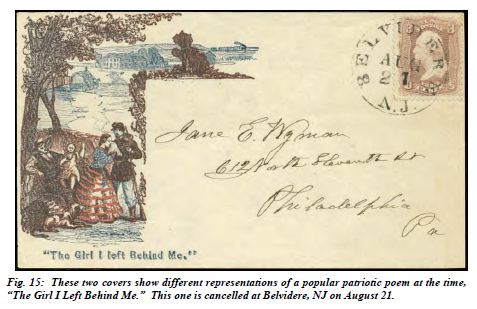 BELVIDERE
AUG
21
N.J.
Jane E. Wyman
612 North Eleventh St
Philadelphia
Pa
"The Girl I left Behind Me."
Fig. 15: These two covers show different representations of a popular patriotic poem at the time,
"The Girl I Left Behind Me." This one is cancelled at Belvidere, NJ on August 21.